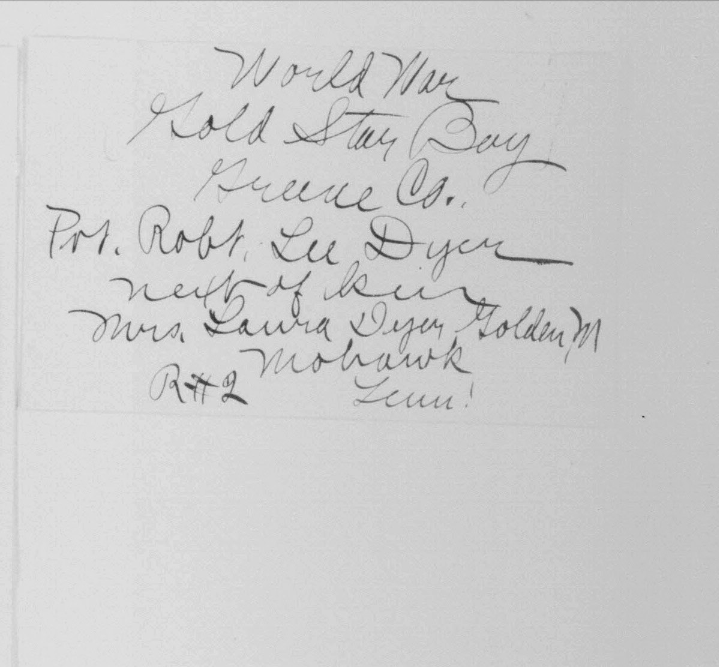 World War
Gold Star Boy
Greene Co.
Pvt. Robt. Lee Dyer
next of kin
Mrs. Laura Dyer Golden, M
Mohawk
R#2 Tenn!